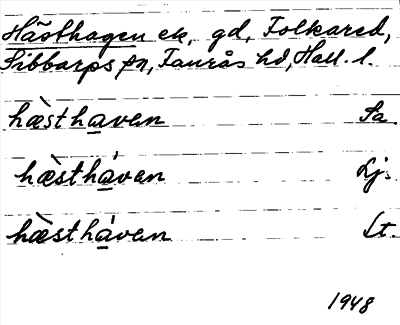 Hästhagen ek, gd, Folkared,
Sibbarps sn, Faurås hd, Hall. l.
hæ̀sthavan Sa.
hæ̀sthávan Lj.
hæ̀sthávan Lt.
1948